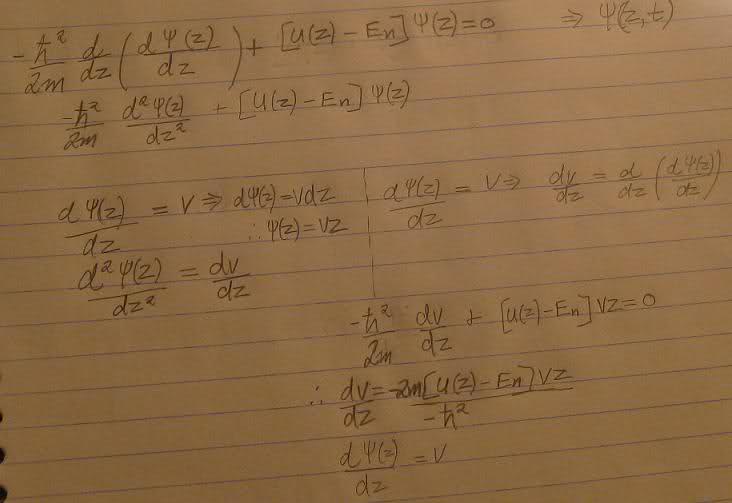 -ħ²/2m d/dz (dΨ(z)/dz) + [U(z) - En] Ψ(z) = 0 ⇒ Ψ(z,t)
-ħ²/2m d²Ψ(z)/dz² + [U(z) - En] Ψ(z)
dΨ(z)/dz = V ⇒ dΨ(z) = Vdz
∴ Ψ(z) = VZ
d²Ψ(z)/dz² = dv/dz
dΨ(z)/dz = V ⇒ dv/dz = d/dz (dΨ(z)/dz)
-ħ²/2m dv/dz + [U(z) - En] VZ = 0
∴ dv/dz = -2m[U(z) - En] VZ / -ħ²
dΨ(z)/dz = V